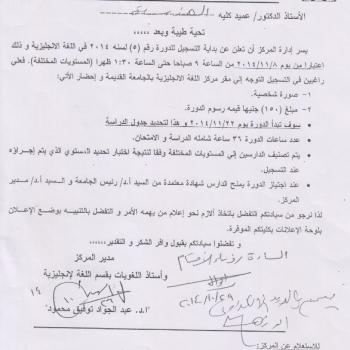 الأستاذ الدكتور/ عميد كلية
تحية طيبة وبعد .....
يسر إدارة المركز أن تعلن عن بداية التسجيل للدورة رقم (٥) لسنه ٢٠١٤ في اللغة الانجليزية و ذلك
اعتبارا من يوم ٢٠١٤/١١/٨ من الساعة ٩ صباحا حتى الساعة ١:٣٠ ظهرا (المستويات المختلفة). فعلي
راغبين في التسجيل التوجه إلي مقر مركز اللغة الانجليزية بالجامعة القديمة و إحضار الأتي:
١- صورة شخصية.
٢- مبلغ (١٥٠) جنيها قيمه رسوم الدورة.
سوف تبدأ الدورة يوم ٢٠١٤/١١/٢٢ و هذا لتحديد جدول الدراسة
عدد ساعات الدورة ٣٦ ساعة شامله الدراسة و الامتحان.
يتم تصنيف الدارسين إلي المستويات المختلفة وفقا لنتيجة اختبار تحديد المستوي الذي يتم إجراؤه
عند التسجيل.
عند اجتياز الدورة يمنح الدارس شهادة معتمدة من السيد أ.د/ رئيس الجامعة و السيد أ.د/ مدير
المركز.
لذا نرجو من سيادتكم التفضل باتخاذ ألازم نحو إعلام من يهمه الأمر و التفضل بالتنبيه بوضع الإعلان
بلوحة الإعلانات بكليتكم الموقرة.
و تفضلوا سيادتكم بقبول وافر الشكر و التقدير...
مدير المركز
وأستاذ اللغويات بقسم اللغة الإنجليزية
أ.د. عبد الجواد توفيق محمود"
للاستعلام عن المركز: